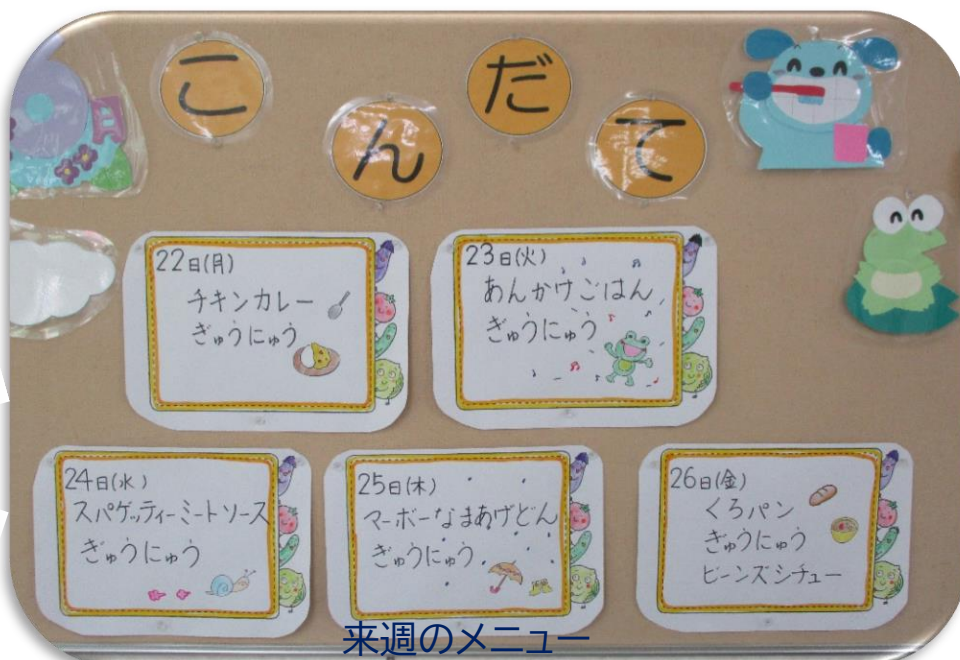 こんだて
22日(月)
チキンカレー
ぎゅうにゅう
23日(火)
あんかけごはん
ぎゅうにゅう
24日(水)
スパゲッティーミートソース
ぎゅうにゅう
25日(木)
マーボーなまあげどん
ぎゅうにゅう
26日(金)
くろパン
ぎゅうにゅう
ビーンズシチュー
来週のメニュー